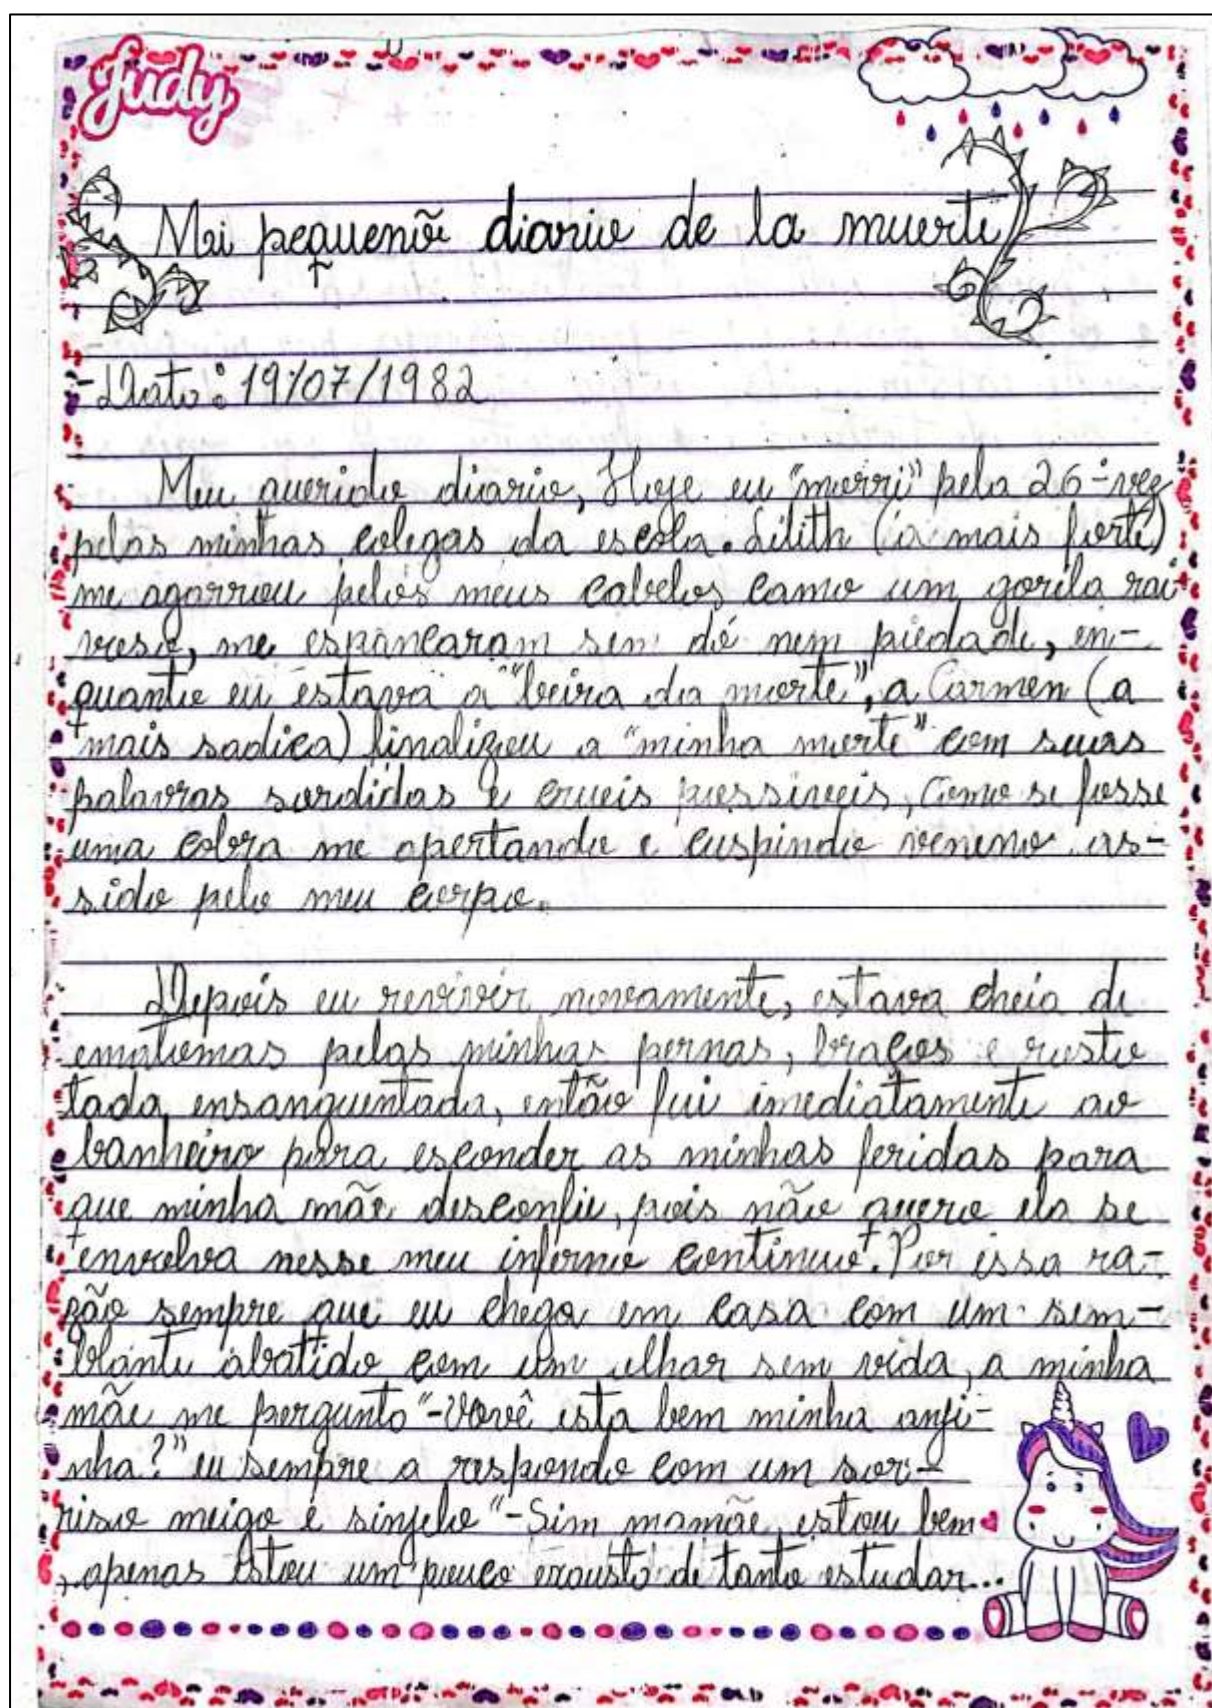 Judy
Mi pequenõ diario de la muerte
-Data: 19/07/1982
Meu querido diario, Hoje eu "morri" pela 26-vez
pelas minhas colegas da escola. Lilith (a mais forte)
me agarrou pelos meus cabelos como um gorila rai
voso, me espancaram sem dó nem piedade, en-
quanto eu estava a "beira da morte", a Carmen (a
mais sadica) finalizou a "minha morte" com suas
palavras sordidas e crueis possiveis, como se fosse
uma cobra me apertando e cuspindo veneno as-
sido pelo meu corpo.
Depois eu revivir novamente, estava cheia de
ematomas pelas minhas pernas, braços e rosto
toda ensanguentada, então fui imediatamente ao
banheiro para esconder as minhas feridas para
que minha mãe desconfie, pois não quero ela se
envolva nesse meu inferno continuo. Por essa ra-
zão sempre que eu chego em casa com um sem-
blante abatido com um olhar sem vida, a minha
mãe me pergunto "-Vovê esta bem minha anji-
nha?" eu sempre a respondo com um sor-
riso meigo e singelo "-Sim mamãe, estou bem
, apenas estou um pouco exausto de tanto estudar...